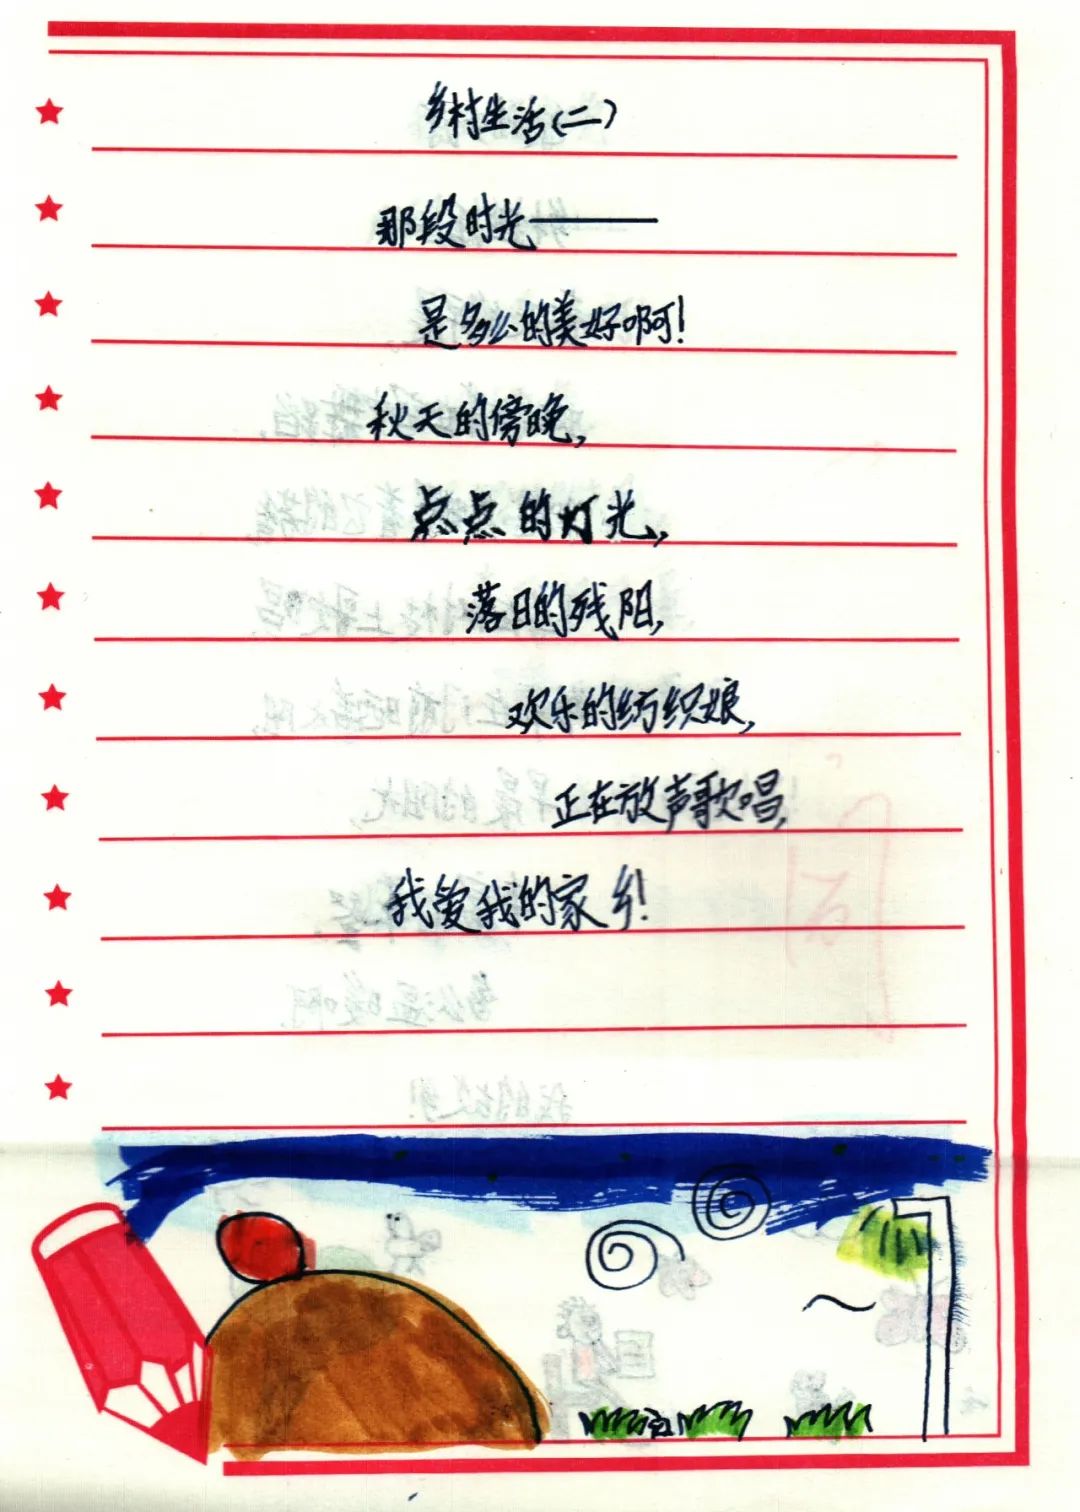 乡村生活(二)
那段时光——
是多么的美好啊!
秋天的傍晚,
点点的灯光,
落日的残阳,
欢乐的纺织娘,
正在放声歌唱,
我爱我的家乡!